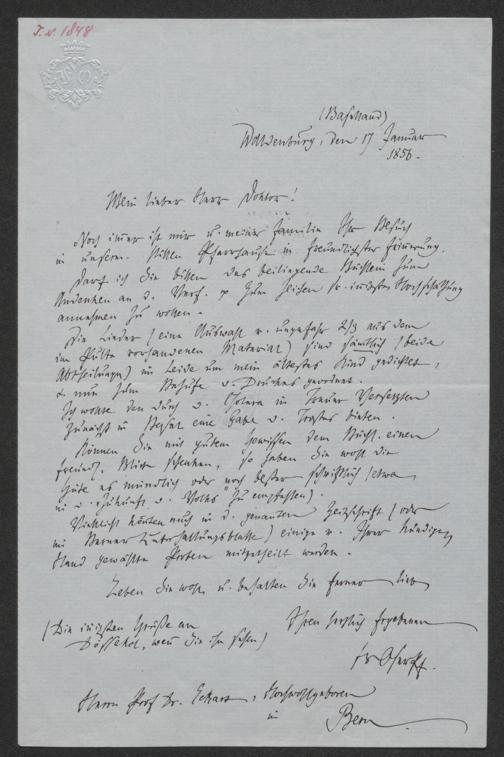 T. N. 1848
(Baselland)
Waldenburg, den 17 Januar
1856.
Mein lieber Herr Doktor!
Noch immer ist mir u. meiner Familie Ihr Besuch
in unserm stillen Pfarrhause in freundlichster Erinnerung.
Darf ich Sie bitten das beiliegende Büchlein zum
Andenken an d. Verf. u. zum Zeichen Hochschätzung
annehmen zu wollen.
Die Lieder (eine Auswahl v. ungefähr 2/3 aus dem
im Pulte vorhandenen Material) sind sämtlich (beide
Abtheilungen) im Leide um mein ältestes Kind gedichtet,
u. nun zum Behufe d. Druckes geordnet.
Ich wollte den durch d. Cholera in Trauer Versetzten
zunächst in Basel eine Gabe d. Trostes bieten.
Können Sie mit gutem Gewissen dem Büchl. einen
freundl. Blick schenken, so haben Sie wohl die
Güte es mündlich oder noch besser schriftlich (etwa
in d. d. Volks zu empfehlen).
Vielleicht könnten auch in d. genannten Zeitschrift (oder
im Berner Unterhaltungsblatte) einige v. Ihrer kundigen
Hand gewählte Proben mitgetheilt werden.
Leben Sie wohl u. behalten Sie ferner lieb
(Die innigsten Grüße an
wenn Sie ihn sehen)
Ihren herzlich ergebenen
Herrn Prof Dr. Eckardt, Hochwohlgeboren
in
Bern